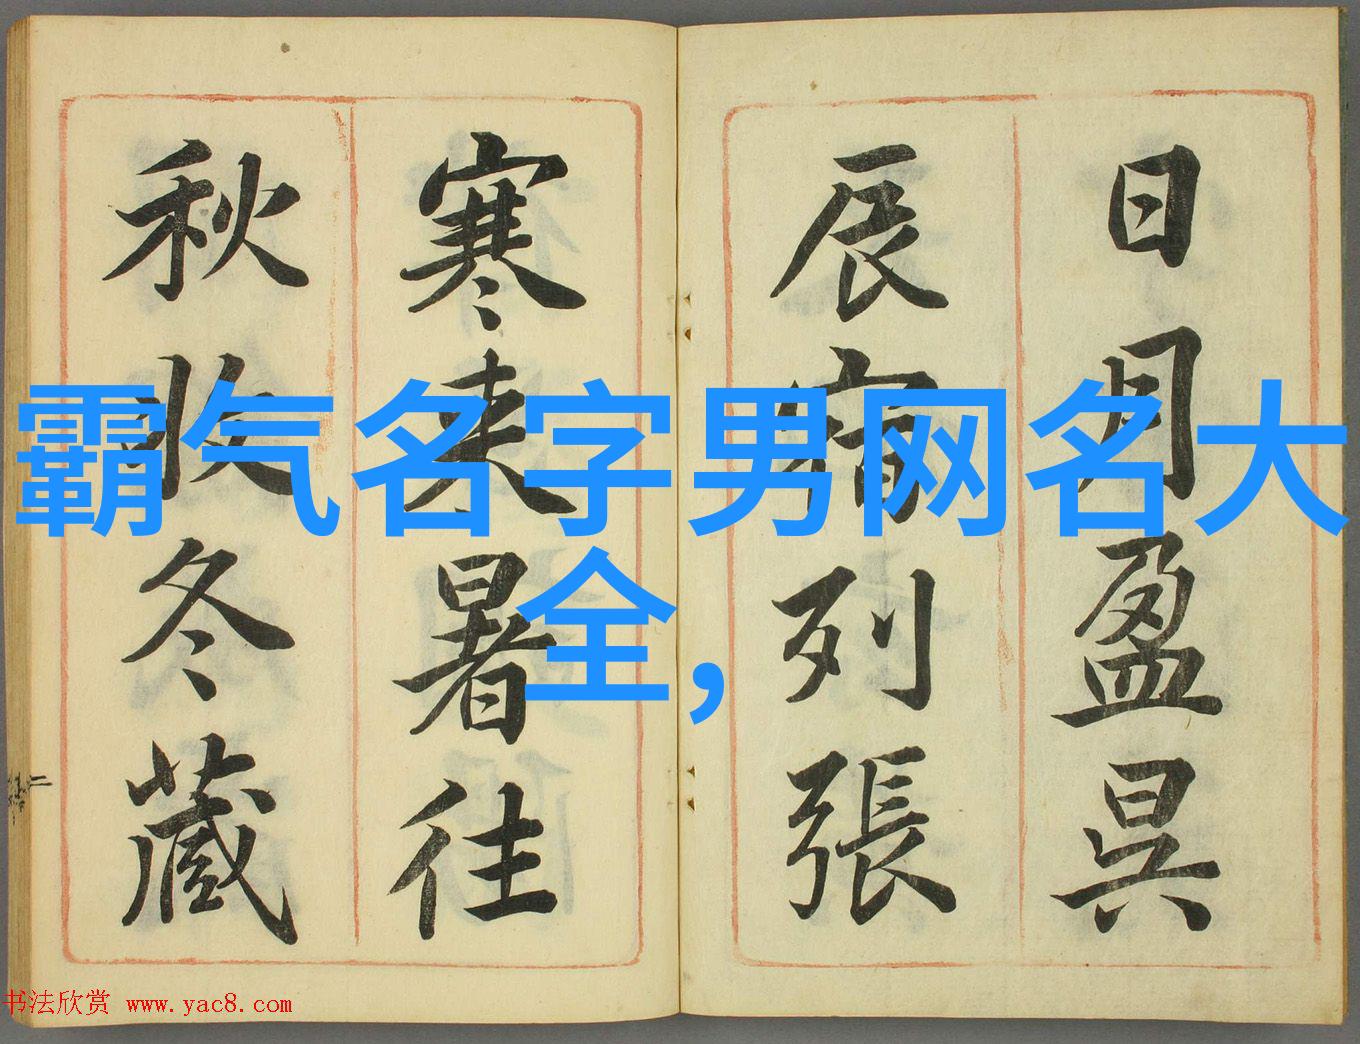 日月盈昃
辰宿列張
寒来暑往
秋收冬藏
霸气名字男网名大
全,
书法欣赏 www.yac8.com